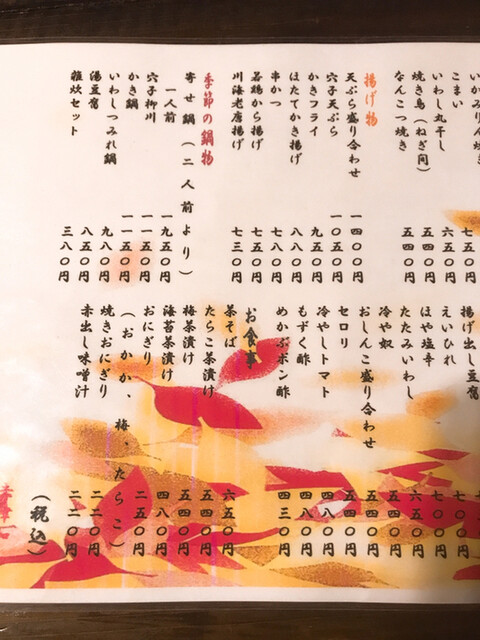 いかみりん焼
こまい 七五〇円
いわし丸干し 六五〇円
焼き鳥（ねぎ間） 五四〇円
なんこつ焼き 五四〇円
揚げ物
天ぷら盛り合わせ 一四〇〇円
穴子天ぷら 一〇五〇円
かきフライ 九五〇円
ほたてかき揚げ 八八〇円
串かつ 七八〇円
若鶏から揚げ 七五〇円
川海老唐揚げ 七三〇円
季節の鍋物
寄せ鍋（二人前より）
一人前 一九五〇円
穴子柳川 一一五〇円
かき鍋 一一五〇円
いわしつみれ鍋 九八〇円
湯豆腐 八五〇円
雑炊セット 三八〇円
揚げ出し豆腐 七〇〇円
えいひれ 七〇〇円
ほや塩辛 七〇〇円
たたみいわし 六五〇円
冷や奴 五四〇円
おしんこ盛り合わせ 五四〇円
セロリ 五四〇円
冷やしトマト 四八〇円
もずく酢 四八〇円
めかぶポン酢 四三〇円
お食事
茶そば 六五〇円
たらこ茶漬け 五四〇円
梅茶漬け 五四〇円
海苔茶漬け 四八〇円
おにぎり 二五〇円
（おかか、梅、たらこ）
焼きおにぎり 二二〇円
赤出し味噌汁 二一〇円
（税込）